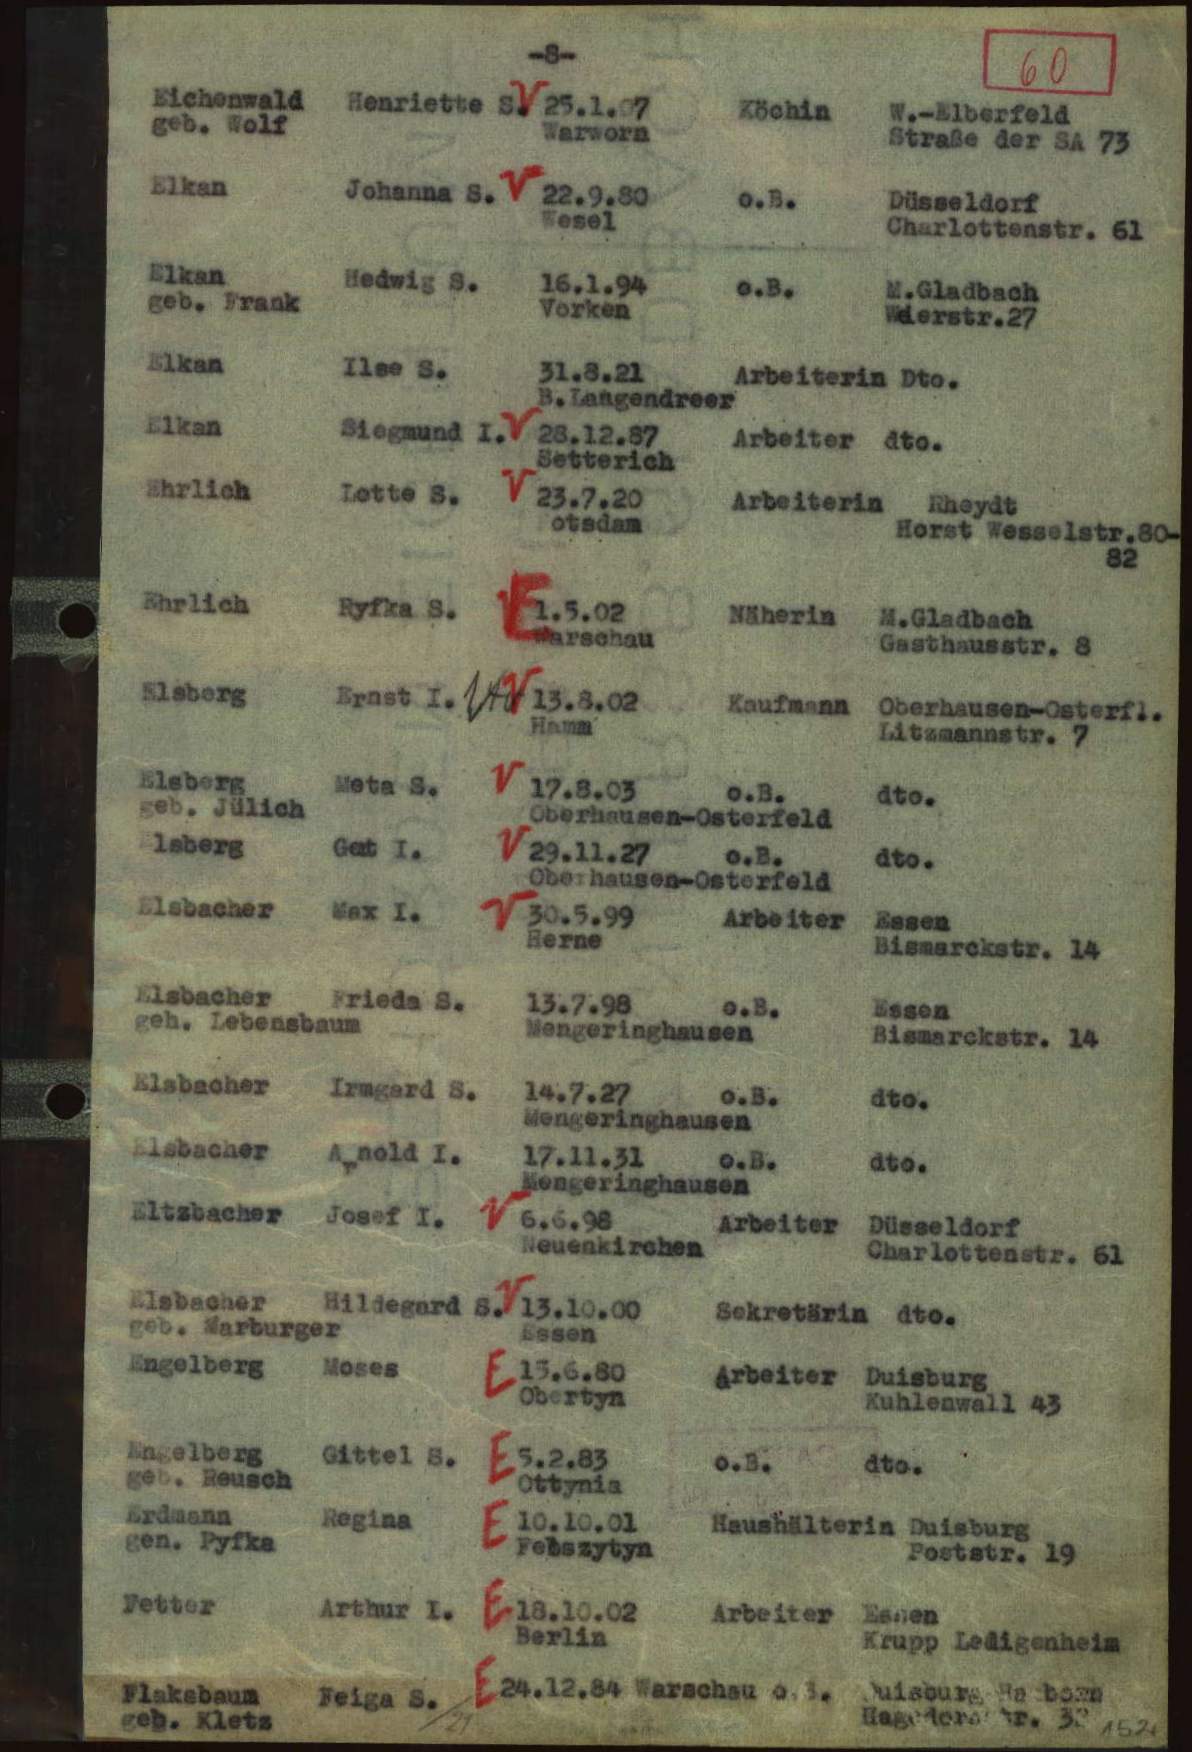 -8-
60
Eichenwald Henriette S. V 25.1.07 Köchin W.-Elberfeld
geb. Wolf Warworn Straße der SA 73
Elkan Johanna S. V 22.9.80 o.B. Düsseldorf
Wesel Charlottenstr. 61
Elkan Hedwig S. 16.1.94 o.B. M.Gladbach
geb. Frank Vorken Weierstr.27
Elkan Ilse S. 31.8.21 Arbeiterin Dto.
B.Langendreer
Elkan Siegmund I. V 28.12.87 Arbeiter dto.
Setterich
Ehrlich Lotte S. V 23.7.20 Arbeiterin Rheydt
otsdam Horst Wesselstr.80-
82
Ehrlich Ryfka S. E 1.5.02 Näherin M.Gladbach
Warschau Gasthausstr. 8
Elsberg Ernst I. V 13.8.02 Kaufmann Oberhausen-Osterfl.
Hamm Litzmannstr. 7
Elsberg Meta S. V 17.8.03 o.B. dto.
geb. Jülich Oberhausen-Osterfeld
Elsberg I. V 29.11.27 o.B. dto.
Oberhausen-Osterfeld
Elsbacher Max I. V 30.5.99 Arbeiter Essen
Herne Bismarckstr. 14
Elsbacher Frieda S. 13.7.98 o.B. Essen
geh. Lebensbaum Mengeringhausen Bismarckstr. 14
Elsbacher Irmgard S. 14.7.27 o.B. dto.
Mengeringhausen
Elsbacher Arnold I. 17.11.31 o.B. dto.
Mengeringhausen
Eltzbacher Josef I. V 6.6.98 Arbeiter Düsseldorf
Neuenkirchen Charlottenstr. 61
Elsbacher Hildegard S. V 13.10.00 Sekretärin dto.
geb. Marburger Essen
Engelberg Moses E 15.6.80 Arbeiter Duisburg
Obertyn Kuhlenwall 43
Engelberg Gittel S. E 5.2.83 o.B. dto.
geb. Reusch Ottynia
Erdmann Regina E 10.10.01 Haushälterin Duisburg
gen. Pyfka Poststr. 19
Fetter Arthur I. E 18.10.02 Arbeiter Essen
Berlin Krupp Ledigenheim
Flaksbaum Feiga S. E 24.12.84 Warschau o.B. Duisburg Hamborn
geb. Kletz